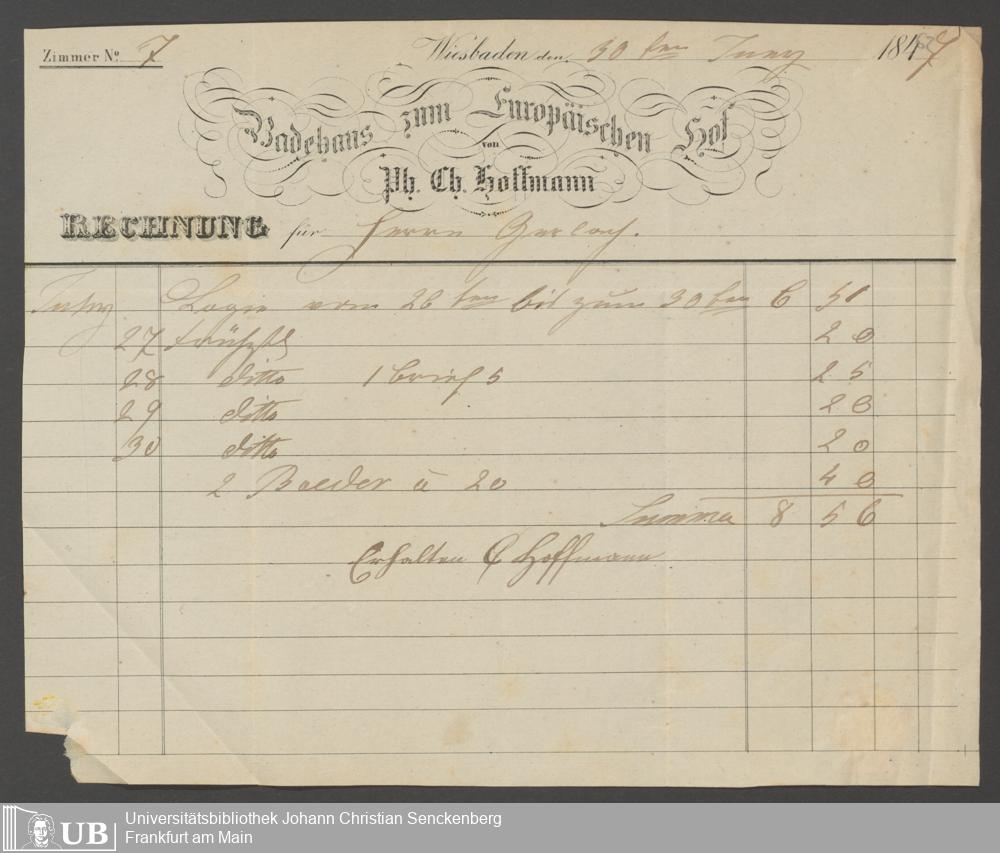 Zimmer No. 7 Wiesbaden den 30 ten Juny 1847
Badehaus zum Europäischen Hof
von
Ph. Ch. Hoffmann
RECHNUNG für Herrn Gerlach.
Logie vom 26 ten bis zum 30 ten 6 51
27 Frühstk 20
28 ditto 1 brief 5 25
29 ditto 20
30 ditto 20
2 Baeder à 20 40
Summa 8 56
Erhalten C Hoffmann
UB Universitätsbibliothek Johann Christian Senckenberg
Frankfurt am Main